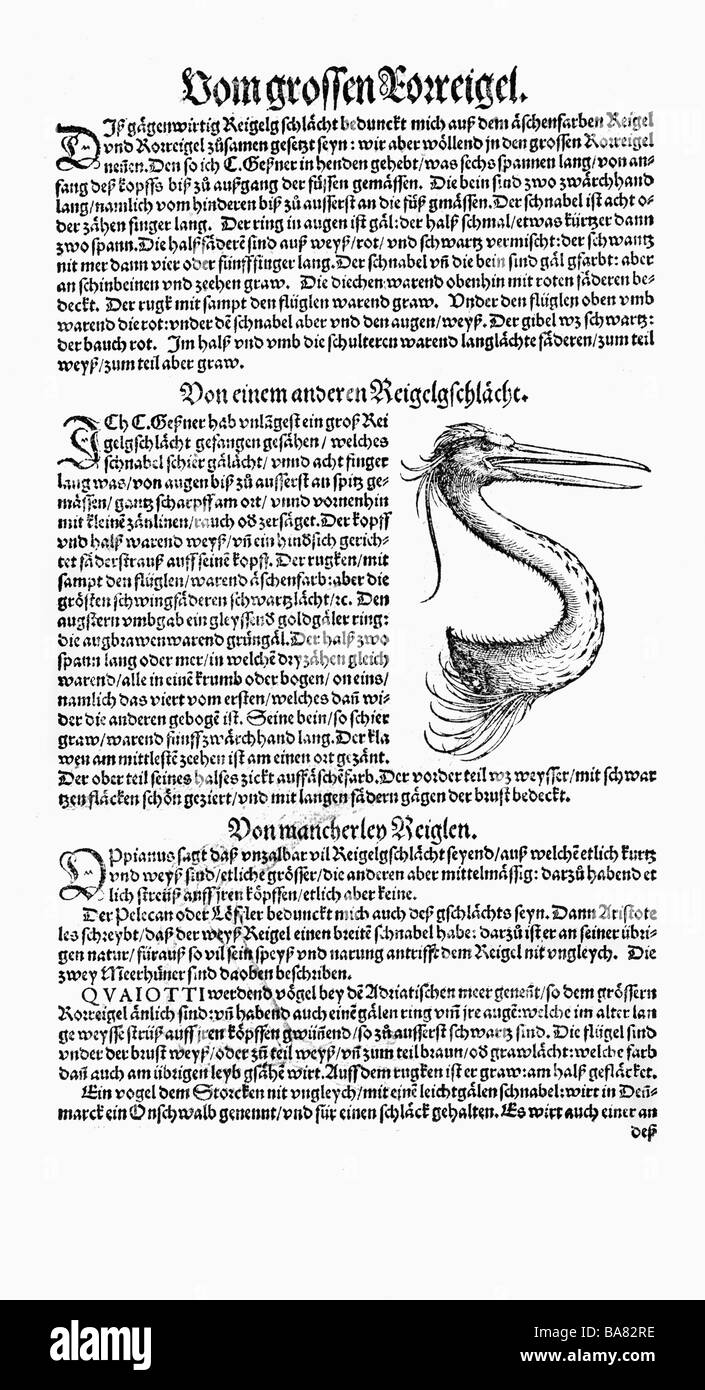 Vom grossen Rorreigel.
DIß gägenwirtig Reigelgschlächt bedunckt mich auß dem äschenfarben Reigel
vnd Rorreigel zůsamen gesetzt seyn: wir aber wöllend jn den grossen Rorreigel
neñen. Den so ich C. Geßner in henden gehebt/ was sechs spannen lang/ von an-
fang deß kopffs biß zů außgang der füssen gemässen. Die bein sind zwo zwärchhand
lang/ namlich vom hinderen biß zů ausserst an die füß gmässen. Der schnabel ist acht o-
der zähen finger lang. Der ring in augen ist gäl: der halß schmal/ etwas kürtzer dann
zwo spann. Die halßfäderē sind auß weyß/ rot/ vnd schwartz vermischt: der schwantz
nit mer dann vier oder fünff finger lang. Der schnabel vñ die bein sind gäl gfarbt: aber
an schinbeinen vnd zeehen graw. Die diechen warend obenhin mit roten fäderen be-
deckt. Der rugk mit sampt den flüglen warend graw. Vnder den flüglen oben vmb
warend die rot: vnder dē schnabel aber vnd den augen/ weyß. Der gibel wz schwartz:
der bauch rot. Im halß vnd vmb die schulteren warend langlächte fäderen/ zum teil
weyß/ zum teil aber graw.
Von einem anderen Reigelgschlächt.
ICh C. Geßner hab vnlägest ein groß Rei
gelgschlächt gefangen gesähen/ welches
schnabel schier gälächt/ vnnd acht finger
lang was/ von augen biß zů ausserst an spitz ge-
mässen/ gantz scharpff am ort/ vnnd vornenhin
mit kleinē zänlinen/ rauch od zersäget. Der kopff
vnd halß warend weyß/ vñ ein hindsich gerich-
tet fäderstrauß auff seinē kopff. Der rugken/ mit
sampt den flüglen/ warend äschenfarb: aber die
grösten schwingfäderen schwartzlächt/ ꝛc. Den
augstern vmbgab ein gleyssend goldgäler ring:
die augbrawen warend grüngäl. Der halß zwo
spann lang oder mer/ in welchē dryzähen gleich
warend/ alle in einē krumb oder bogen/ on eins/
namlich das viert vom ersten/ welches dañ wi-
der die anderen gebogē ist. Seine bein/ so schier
graw/ warend fünff zwärchhand lang. Der kla
wen am mittlestē zeehen ist am einen ort gezänt.
Der ober teil seines halses zickt auff äschēfarb. Der vorder teil wz weysser/ mit schwar
tzen fläcken schön geziert/ vnd mit langen fädern gägen der brust bedeckt.
Von mancherley Reiglen.
OPpianus sagt daß vnzalbar vil Reigelgschlächt seyend/ auß welchē etlich kurtz
vnd weyß sind/ etliche grösser/ die anderen aber mittelmässig: darzů habend et
lich streüß auff jren köpffen/ etlich aber keine.
Der Pelecan oder Löffler bedunckt mich auch deß gschlächts seyn. Dann Aristote
les schreybt/ daß der weyß Reigel einen breitē schnabel habe: darzů ist er an seiner übri-
gen natur/ fürauß so vil sein speyß vnd narung antrifft dem Reigel nit vngleych. Die
zwey Meerhüner sind daoben beschriben.
QVAIOTTI werdend vögel bey dē Adriatischen meer geneñt/ so dem grössern
Rorreigel änlich sind: vñ habend auch einē gälen ring vm̃ jre augē: welche im alter lan
ge weysse strüß auff jren köpffen gwüñend/ so zů ausserst schwartz sind. Die flügel sind
vnder der brust weyß/ oder zũ teil weyß/ vñ zum teil braun/ od grawlächt: welche farb
dañ auch am übrigen leyb gsähē wirt. Auff dem rugken ist er graw: am halß gefläcket.
Ein vogel dem Storcken nit vngleych/ mit einē leichtgälen schnabel: wirt in Deñ-
marck ein Onschwalb genennt/ vnd für einen schläck gehalten. Es wirt auch einer an
deß
alamy
Image ID: BA82RE
www.alamy.com